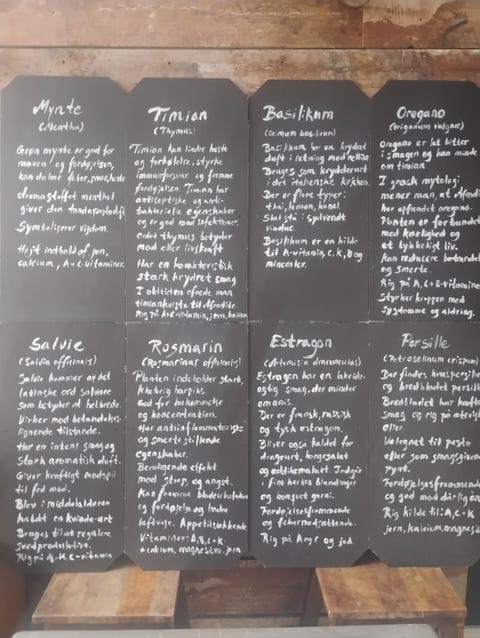 Mynte
(Mentha)
Grøn mynte er god for
maven og fordøjelsen,
kan dulme feber, smerte, hoste
aromastoffet menthol
giver den
Symboliserer visdom.
Højt indhold af jern,
calcium, A + C-vitaminer.
Timian
(Thymus)
Timian kan lindre hoste
og forkølelse, styrke
immunforsvar og fremme
fordøjelsen Timian har
antiseptiske og anti-
bakterielle egenskaber
og er god mod infektioner.
Ordet thymus betyder
mod eller livskraft
Har en karakteristisk
stærk krydret smag
I oldtiden ofrede man
timiankviste til Afrodite.
Rig på A+E-vitamin, jern, kalium
Basilikum
(Ocimum basilicum)
Basilikum har en krydret
duft i retning mod nellike
Bruges som krydderurt
i det italienske køkken.
Der er flere typer:
thai, lemon, kanel.
Skal stå i sydvendt
vindue.
Basilikum er en kilde
til A-vitamin, C, K, B og
mineraler.
Oregano
(Origanum vulgare)
Oregano er let bitter
i smagen og kan minde
om timian
I græsk mytologi
mener man, at Afrodi
har opfundet oregano.
Planten er forbundet
med kærlighed og
et lykkeligt liv.
Kan reducere
og smerte.
Rig på A, C + E-vitamine
Styrker kroppen mod
sygdomme og aldring.
Salvie
(Salvia officinalis)
Salvie kommer af det
latinske ord salvare
som betyder at helbrede.
Virker mod betændelses-
lignende tilstande.
Har en intens smag og
stærk aromatisk duft.
Giver kraftigt modspil
til fed mad.
Blev i middelalderen
kaldt en kvinde-urt
Bruges til at regulere
svedproduktion.
Rig på A, K, C-vitamin
Rosmarin
(Rosmarinus officinalis)
Planten indeholder stærk,
klæbrig harpiks.
God for hukommelse
og koncentration.
Har antiinflammatorisk
og smertestillende
egenskaber.
Beroligende effekt
mod stress og angst.
Kan fremme blodcirkulation
og fordøjelse og lindre
luftveje. Appetitvækkende
Vitaminer: A, B, C + K
+ calcium, magnesium, jern
Estragon
(Artemisia dracunculus)
Estragon har en lakrids-
agtig smag, der minder
om anis.
Der er fransk, russisk
og tysk estragon.
Bliver også kaldet for
drageurt,
og Indgår
i fine herbes blandinger
og bouquet garni.
Fordøjelsesfremmende
og febernedsættende.
Rig på Arge og jod
Persille
(Petroselinum crispum)
Der findes kruspersille
og bredbladet persille
Bredbladet har kraftig
smag og rig på æterisk
olier.
Velegnet til pesto
eller som smagsgiver
pynt.
Fordøjelsesfremmende
og god mod dårlig ån
Rig kilde til: A, C + K
jern, kalcium, magnesium